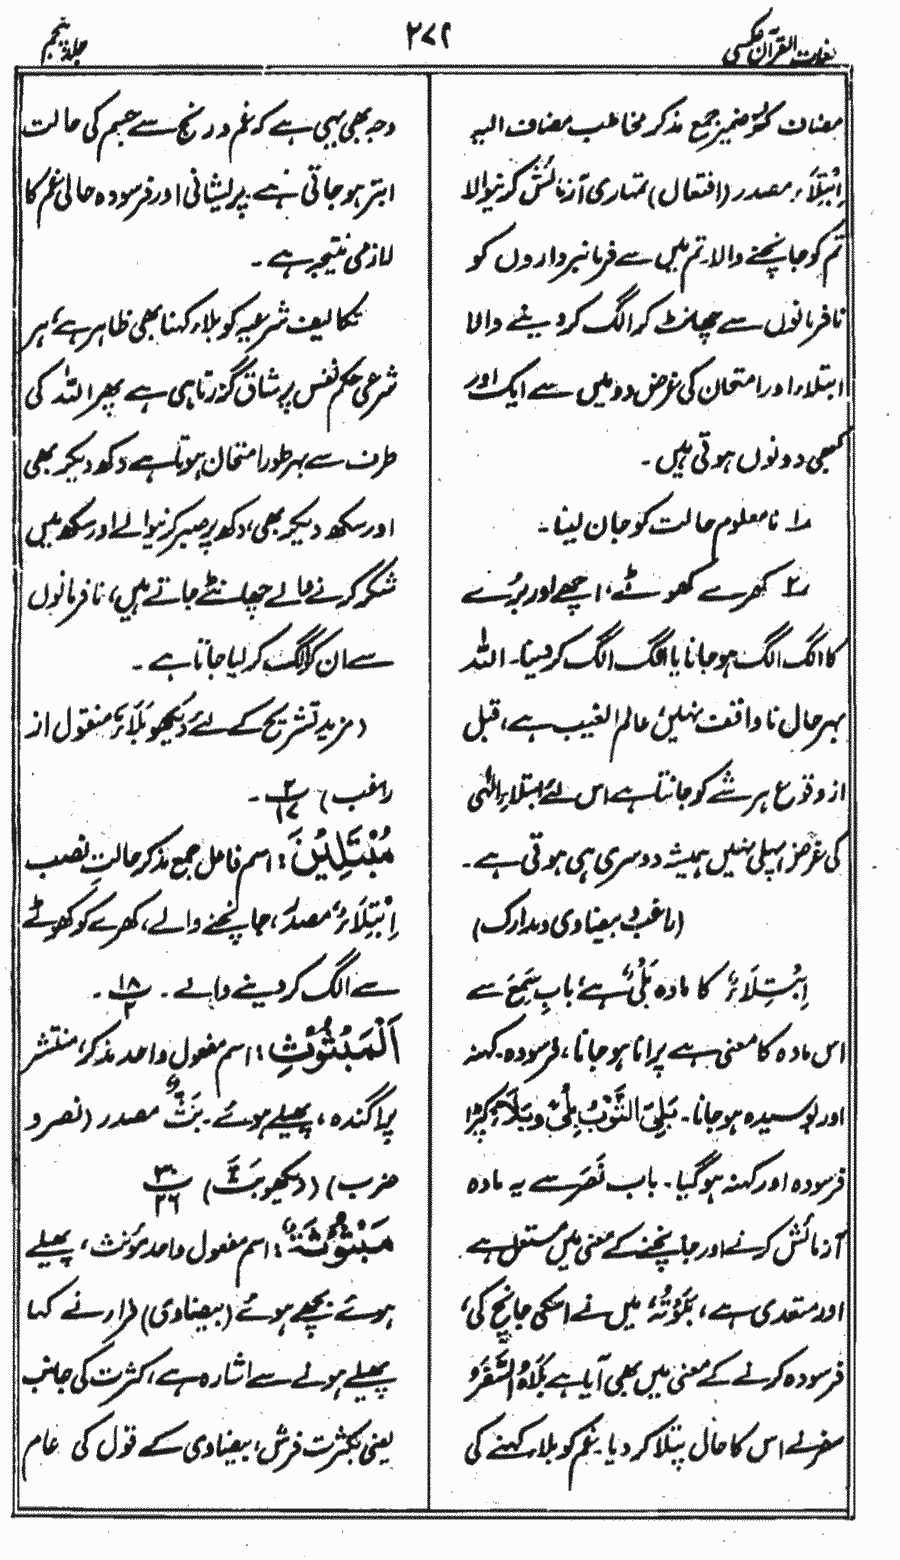 لغات القرآن عکسی
۲۷۹
جلد پنجم
مضاف کُمْ ضمیر جمع مذکر مخاطب مضاف الیہ
اِبْتِلَاءٌ مصدر (افتعال) تمہاری آزمائش کرنیوالا
تم کو جانچنے والا۔ تم میں سے فرمانبرداروں کو
نافرمانوں سے چھانٹ کر الگ کر دینے والا
ابتلاء اور امتحان کی غرض دو میں سے ایک اور
کبھی دونوں ہوتی ہیں۔
۱ نامعلوم حالت کو جان لینا۔
۲ کھرے کھوٹے، اچھے اور بُرے
کا الگ الگ ہو جانا یا الگ الگ کر دینا۔ اللہ
بہرحال ناواقف نہیں، عالم الغیب ہے، قبل
از وقوع ہر شے کو جانتا ہے اس لئے ابتلاءِ الٰہی
کی غرض پہلی نہیں ہمیشہ دوسری ہی ہوتی ہے۔
(راغب و بیضاوی و مدارک)
اِبْتِلَاءٌ کا مادہ بَلْیٌ ہے، بابِ سَمِعَ سے
اس مادہ کا معنی ہے پرانا ہو جانا، فرسودہ۔ کہنہ
اور بوسیدہ ہو جانا۔ بَلِیَ الثَّوْبُ بِلًی وَبَلَاءً کپڑا
فرسودہ اور کہنہ ہو گیا۔ باب نَصَرَ سے یہ مادہ
آزمائش کرنے اور جانچنے کے معنی میں مستعمل ہے
اور متعدی ہے، بَلَوْتُہٗ میں نے اسکی جانچ کی،
فرسودہ کرنے کے معنی میں بھی آیا ہے بَلَاہُ السَّفَرُ
سفر نے اس کا حال پتلا کر دیا۔ غم کو بلاء کہنے کی
وجہ بھی یہی ہے کہ غم و رنج سے جسم کی حالت
ابتر ہو جاتی ہے۔ پریشانی اور فرسودہ حالی غم کا
لازمی نتیجہ ہے۔
تکالیف شرعیہ کو بلاء کہنا بھی ظاہر ہے، ہر
شرعی حکم نفس پر شاق گزرتا ہی ہے پھر اللہ کی
طرف سے بہر طور امتحان ہوتا ہے دکھ دیکر بھی
اور سکھ دیکر بھی، دکھ پر صبر کرنیوالے اور سکھ میں
شکر کرنے والے چھانٹے جاتے ہیں، نافرمانوں
سے ان کو الگ کر لیا جاتا ہے۔
(مزید تشریح کے لئے دیکھو بَلَاءٌ، منقول از
راغب) ۲/۱۷۔
مُبْتَلِیْنَ: اسم فاعل جمع مذکر حالتِ نصب
اِبْتِلَاءٌ مصدر، جانچنے والے، کھرے کو کھوٹے
سے الگ کر دینے والے۔ ۱۸/۲۔
اَلْمَبْثُوْثِ: اسم مفعول واحد مذکر، منتشر
پراگندہ، پھیلے ہوئے۔ بَثٌّ مصدر (نصر و
ضرب) (دیکھو بَثَّ) ۳۰/۲۶
مَبْثُوْثَۃٌ: اسم مفعول واحد مؤنث، پھیلے
ہوئے بچھے ہوئے (بیضاوی) فراء نے کہا
پھیلے ہونے سے اشارہ ہے، کثرت کی جانب
یعنی بکثرت فرش، بیضاوی کے قول کی عام